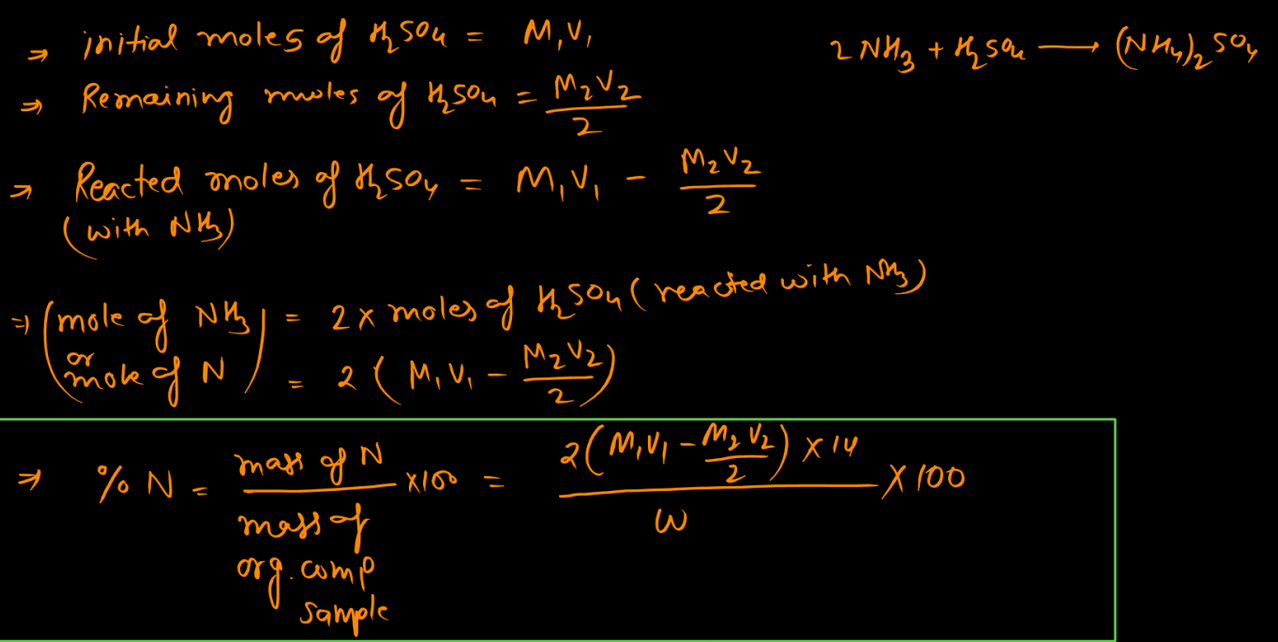 ⇒ initial moles of H₂SO₄ = M₁V₁
2NH₃ + H₂SO₄ ⟶ (NH₄)₂SO₄
⇒ Remaining moles of H₂SO₄ = M₂V₂/2
⇒ Reacted moles of H₂SO₄ = M₁V₁ - M₂V₂/2
(with NH₃)
⇒ (mole of NH₃ = 2 x moles of H₂SO₄ (reacted with NH₃)
or
mole of N) = 2 (M₁V₁ - M₂V₂/2)
⇒ % N = mass of N / mass of org. comp sample ×100 = 2(M₁V₁ - M₂V₂/2) × 14 / W × 100